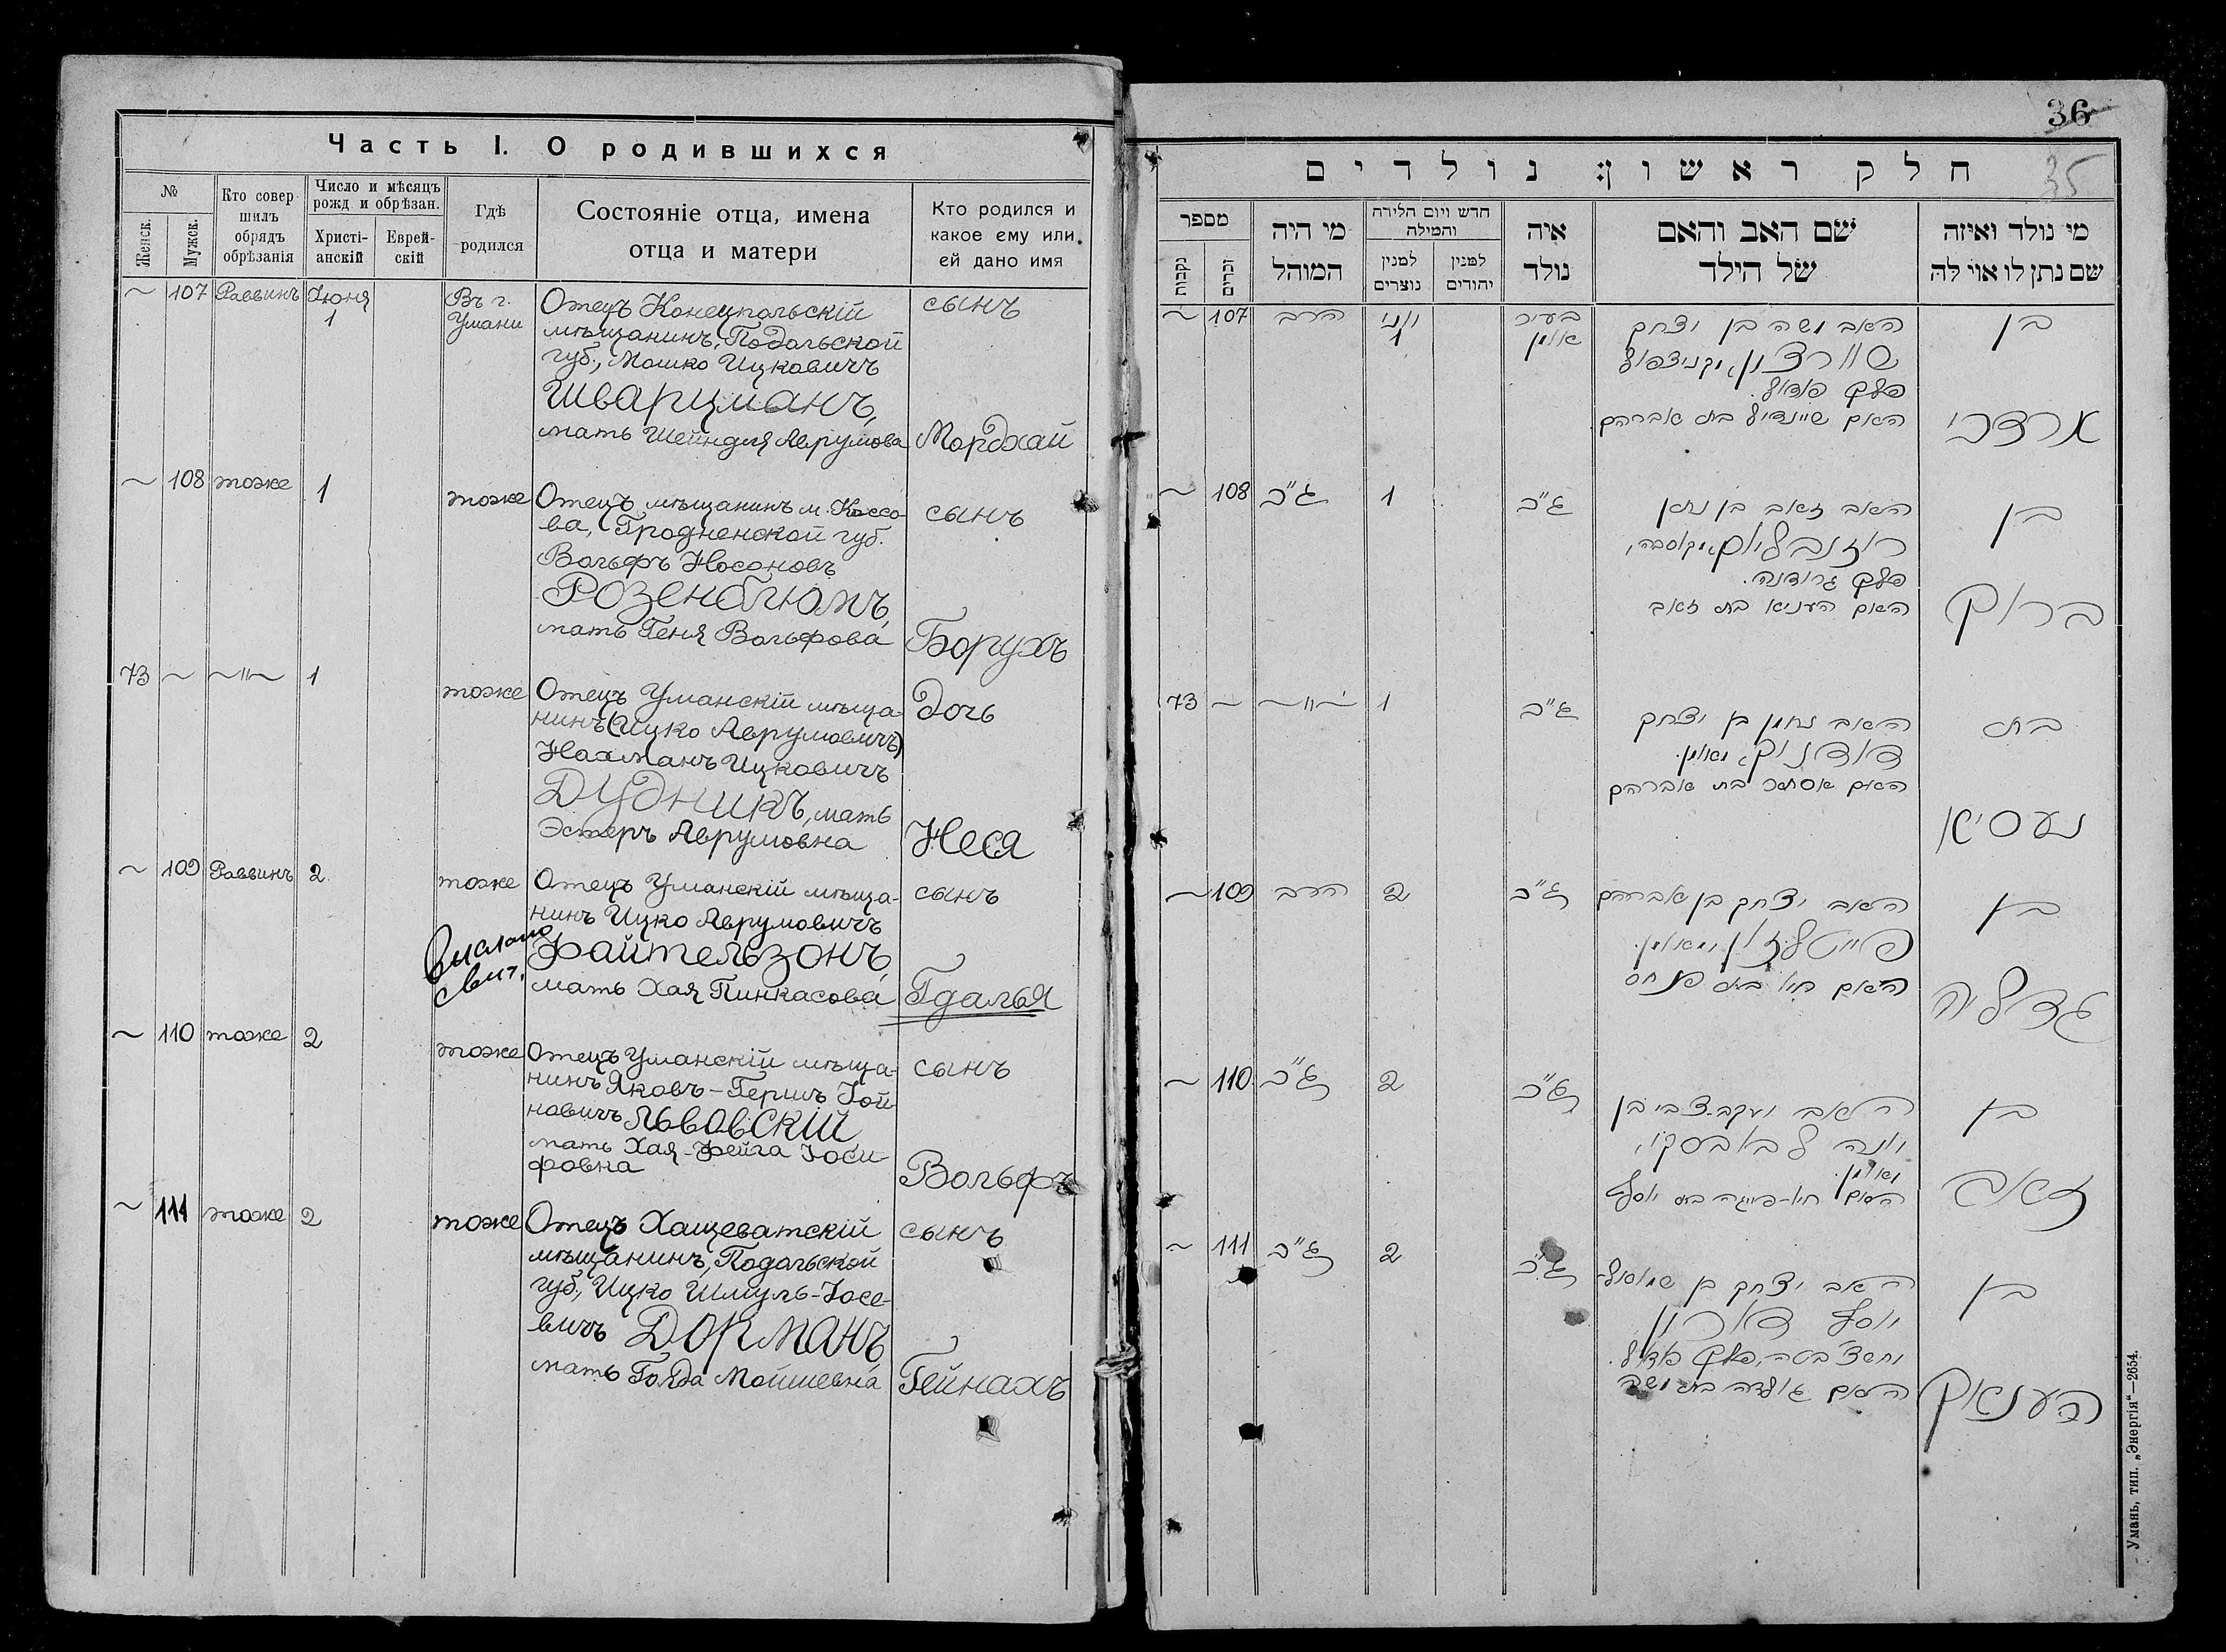 Часть I. О родившихся
№
Женск.
Мужск.
Кто совер
шилъ
обрядъ
обрѣзанія
Число и мѣсяцъ
рожд и обрѣзан.
Христі-
анскій
Еврей-
скій
Гдѣ
родился
Состояніе отца, имена
отца и матери
Кто родился и
какое ему или
ей дано имя
~ 107 Раввинъ Іюня
1
Въ г.
Умани
Отецъ Конецпольскій
мѣщанинъ, Подольской
губ., Мошко Ицковичъ
Шварцманъ,
мать Шейндля Аврумова
сынъ
Мордхай
~ 108 тоже 1 тоже
Отецъ мѣщанинъ м. Коссо-
ва, Гродненской губ.
Вольфъ Носоновъ
Розенблюмъ,
мать Геня Вольфова
сынъ
Борухъ
73 ~ ~"~ 1 тоже
Отецъ Уманскій мѣща-
нинъ (Ицко Аврумовичъ)
Нахманъ Ицковичъ
Дудникъ, мать
Эстеръ Аврумовна
Дочь
Неся
~ 109 Раввинъ 2 тоже
Отецъ Уманскій мѣща-
нинъ Ицко Аврумовичъ
Файтельзонъ,
мать Хая Пинкасова
сынъ
Гдалья
~ 110 тоже 2 тоже
Отецъ Уманскій мѣща-
нинъ Яковъ-Гершъ Іой
новичъ Львовскій
мать Хая-Фейга Іоси
фовна
сынъ
Вольфъ
~ 111 тоже 2 тоже
Отецъ Хащеватскій
мѣщанинъ, Подольской
губ., Ицко Шмуль-Іосе-
вичъ Дорманъ,
мать Голда Мойшевна
сынъ
Гейнахъ
36
35
חלק ראשון: נולדים
מספר
נקבות
זכרים
מי היה
המוהל
חדש ויום הלידה
והמילה
למנין
נוצרים
למנין
יהודים
איה
נולד
שם האב והאם
של הילד
מי נולד ואיזה
שם נתן לו או לה
~ 107 הרב יוני
1
בעיר
אומן
האב משה בן יצחק
שווארצמן, מקניצפול
פלך פודול.
האם שיינדיל בת אברהם
בן
מרדכי
~ 108 ג"כ 1 ג"כ
האב זאב בן נתן
ראזנבליום, מקאסבה,
פלך גרודנה.
האם העניא בת זאב
בן
ברוך
73 ~ ~"~ 1 ג"כ
האב נחמן בן יצחק
דודניק, מאומן.
האם אסתר בת אברהם
בת
נעסיא
~ 109 הרב 2 ג"כ
האב יצחק בן אברהם
פייטלזון, מאומן.
האם חיה בת פנחס
בן
גדליה
~ 110 ג"כ 2 ג"כ
האב יעקב-צבי בן
יונה לבאבסקי,
מאומן.
האם חיה-פייגה בת יוסף
בן
זאב
~ 111 ג"כ 2 ג"כ
האב יצחק בן שמואל-
יוסף דארמן
מחשצבטה, פלך פודול.
האם גולדה בת משה
בן
הענאך
Умань, тип. „Энергія“—2654.